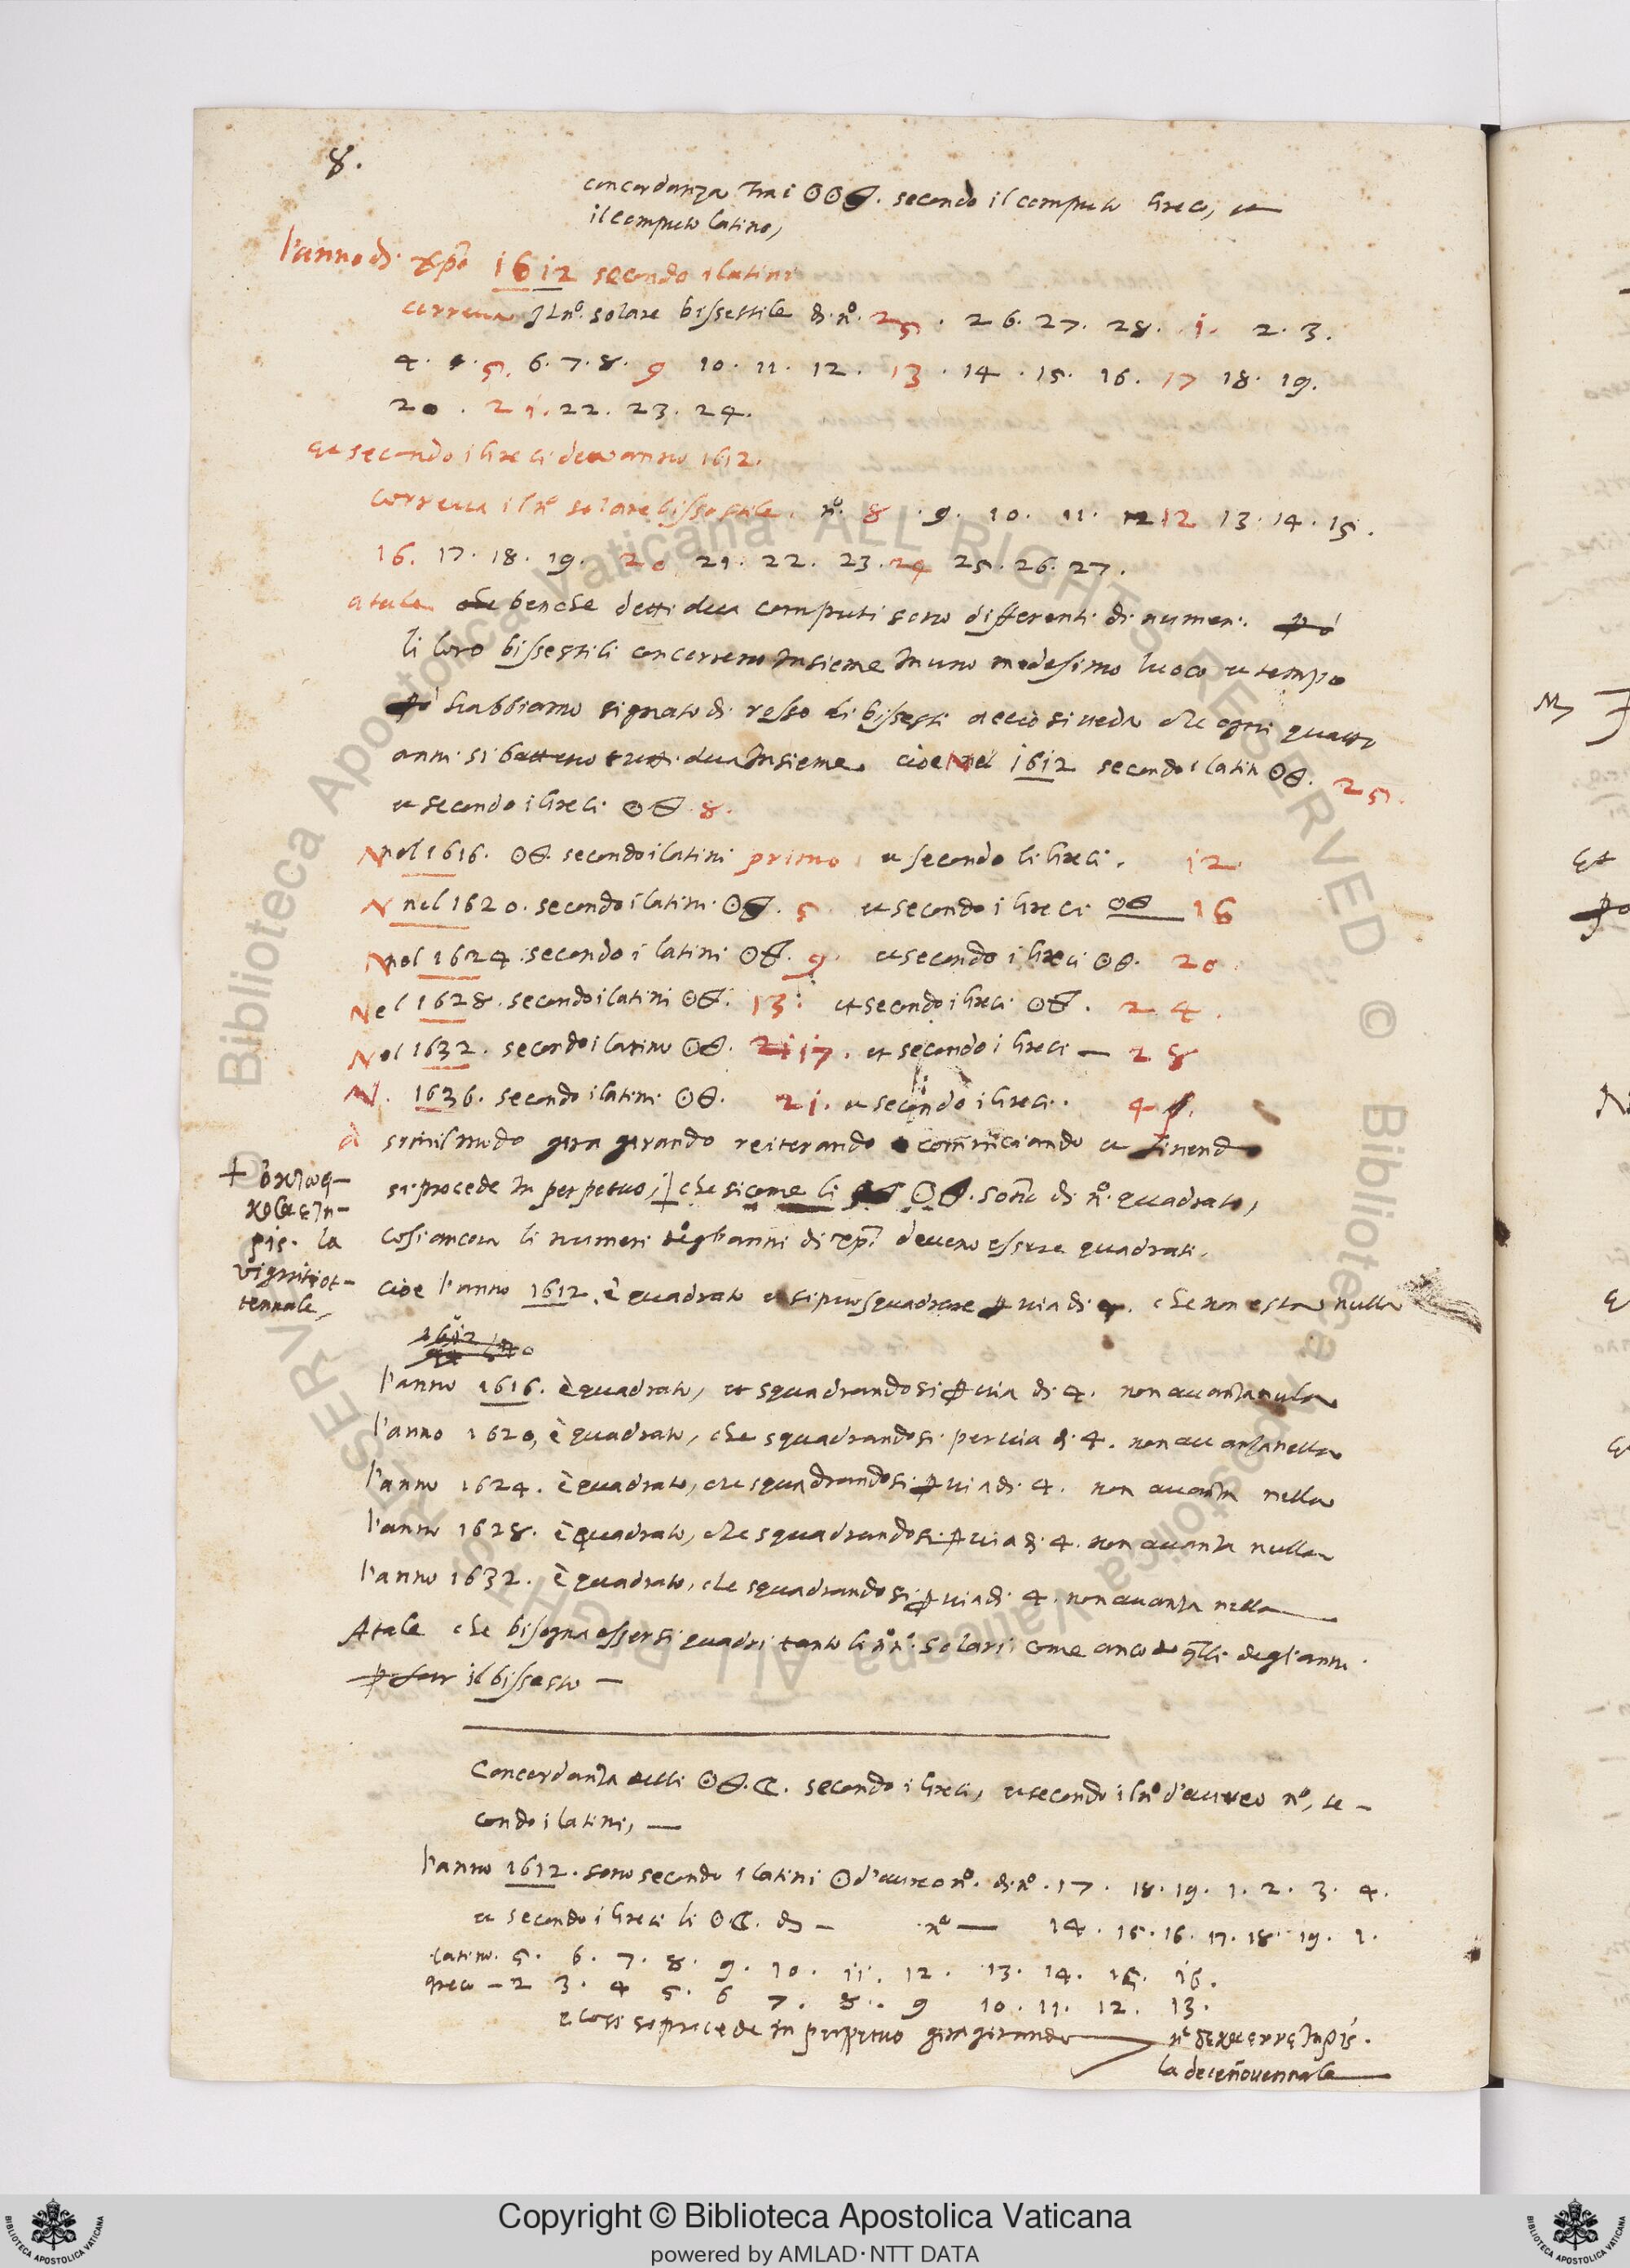 8.
concordanza Tra i ☉☉. secondo il computo Greco, et
il computo Latino,
l'anno di xpo 1612 secondo i latini
correua il no. solare bissestile di no. 25. 26. 27. 28. 1. 2. 3.
4. 5. 6. 7. 8. 9 10. 11. 12. 13. 14. 15. 16. 17 18. 19.
20. 21. 22. 23. 24.
et secondo i Greci detto anno 1612.
Correua il no solare bissestile. no. 8. 9. 10. 11. 12 13. 14. 15.
16. 17. 18. 19. 20 21. 22. 23. 24 25. 26. 27.
a tale che benche detti dua computi sono differenti di numeri. però
li loro bissestili concorreno insieme in uno medesimo luoco et tempo
però habbiamo signato di rosso li bissesti acciò si ueda che ogni quatro
anni si batteno tutti dua insieme. cioe Nel 1612 secondo i latin ☉. 25.
et secondo i Greci ☉. 8.
Nnel 1616. ☉. secondo i latini primo. et secondo li Greci. 12.
N nel 1620. secondo i latini ☉. 5. et secondo i Greci ☉ 16
Nnel 1624. secondo i latini ☉. 9. et secondo i Greci ☉. 20.
Nel 1628. secondo i latini ☉. 13. et secondo i Greci ☉. 24.
Nel 1632. secondo i latino ☉. 21 17. et secondo i Greci — 28
Nl. 1636. secondo i latini ☉. 21. et secondo i Greci. 4
a similmodo gira girando reiterando cominciando et finendo
si procede in perpetuo, che si come li ☉. sono di no. quadrato,
la
vigintiot-
tennale
cosi ancora li numeri degl'anni di xpi deueno essere quadrati.
cioe l'anno 1612. è quadrato et si puo squadrare p uia di 4. che non resta nulla
1612
l'anno 1616. è quadrato, et squadrandosi p uia di 4. non auanza nulla
l'anno 1620, è quadrato, che squadrandosi per uia di 4. non auanza nulla
l'anno 1624. è quadrato, che squadrandosi p uia di 4. non auanza nulla
l'anno 1628. è quadrato, che squadrandosi p uia di 4. non auanza nulla
l'anno 1632. è quadrato, che squadrandosi p uia di 4. non auanza nulla
Atale che bisogna essersi quadri tanto li ni. solari come anco qlli degl'anni
p far il bissesto —
Concordanza delli ☉. ☾. secondo i Greci, et secondo il no d'aureo no, se-
condo i latini, —
l'anno 1612. sono secondo i latini ☉ d'aureo no. di no. 17. 18. 19. 1. 2. 3. 4.
et secondo i Greci li ☉. ☾. di — no — 14. 15. 16. 17. 18. 19. 1.
latino. 5. 6. 7. 8. 9. 10. 11. 12. 13. 14. 15. 16.
greco — 2 3. 4 5. 6 7. 8. 9 10. 11. 12. 13.
e cosi si procede in perpetuo gira girando
la decennouennale
Copyright © Biblioteca Apostolica Vaticana
powered by AMLAD·NTT DATA